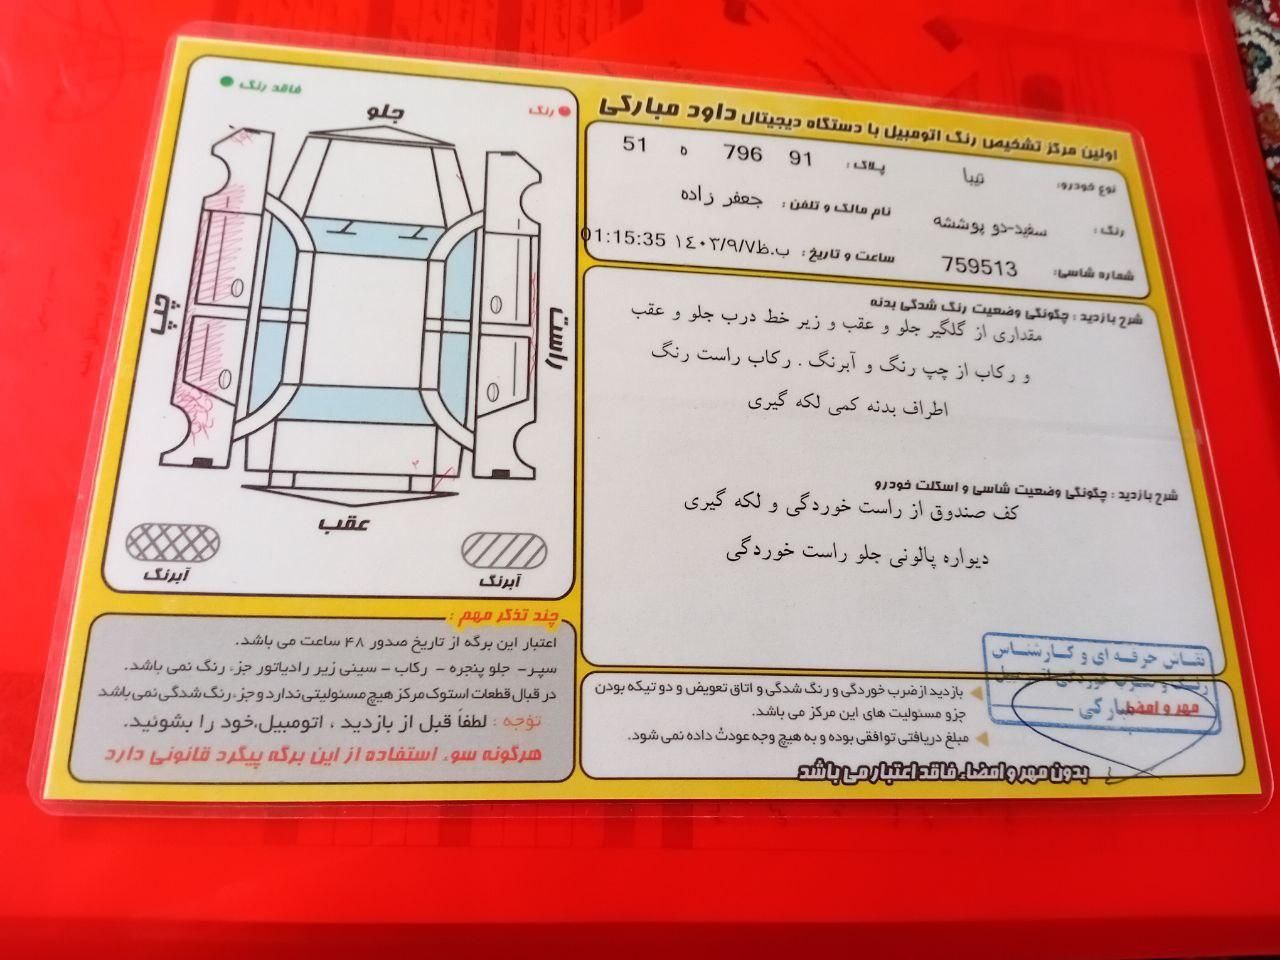 اولین مرکز تشخیص رنگ اتومبیل با دستگاه دیجیتال داود مبارکی
نوع خودرو: تیبا
پلاک: 91 796 ه 51
رنگ: سفید-دو پوششه
نام مالک و تلفن: جعفر زاده
شماره شاسی: 759513
ساعت و تاریخ: ب.ظ ۱۴۰۳/۹/۷ 01:15:35
شرح بازدید: چگونگی وضعیت رنگ شدگی بدنه
مقداری از گلگیر جلو و عقب و زیر خط درب جلو و عقب
و رکاب از چپ رنگ و آبرنگ . رکاب راست رنگ
اطراف بدنه کمی لکه گیری
شرح بازدید: چگونگی وضعیت شاسی و اسکلت خودرو
کف صندوق از راست خوردگی و لکه گیری
دیواره پالونی جلو راست خوردگی
نقاش حرفه ای و کارشناس
مبارکی
مهر و امضاء
بازدید از ضرب خوردگی و رنگ شدگی و اتاق تعویض و دو تیکه بودن
جزو مسئولیت های این مرکز می باشد.
مبلغ دریافتی توافقی بوده و به هیچ وجه عودت داده نمی شود.
بدون مهر و امضاء فاقد اعتبار می باشد
رنگ
فاقد رنگ
جلو
راست
چپ
عقب
آبرنگ
آبرنگ
چند تذکر مهم:
اعتبار این برگه از تاریخ صدور ۴۸ ساعت می باشد.
سپر - جلو پنجره - رکاب - سینی زیر رادیاتور جزء رنگ نمی باشد.
در قبال قطعات استوک مرکز هیچ مسئولیتی ندارد و جزء رنگ شدگی نمی باشد
توجه: لطفاً قبل از بازدید ، اتومبیل خود را بشوئید.
هرگونه سوء استفاده از این برگه پیگرد قانونی دارد